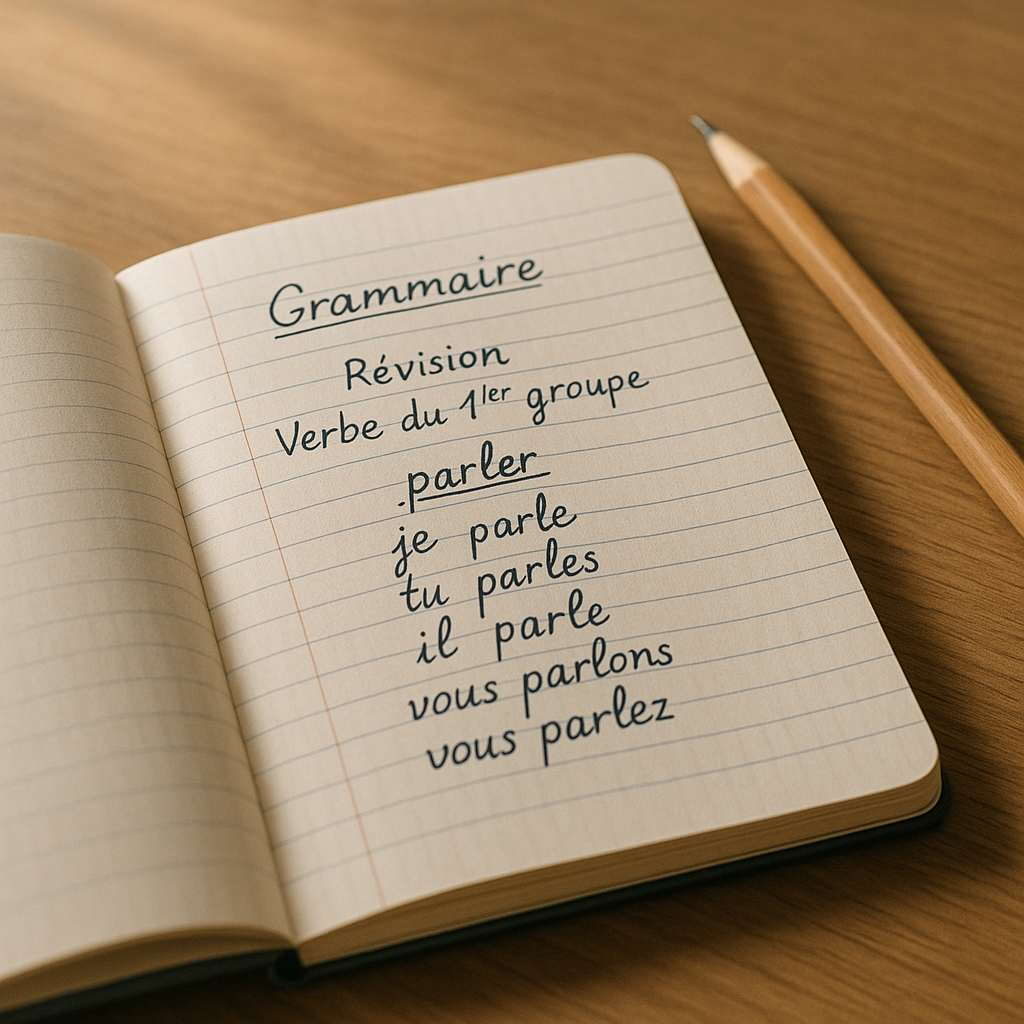 Grammaire
Révision
Verbe du 1ier groupe
parler
je parle
tu parles
il parle
vous parlons
vous parlez